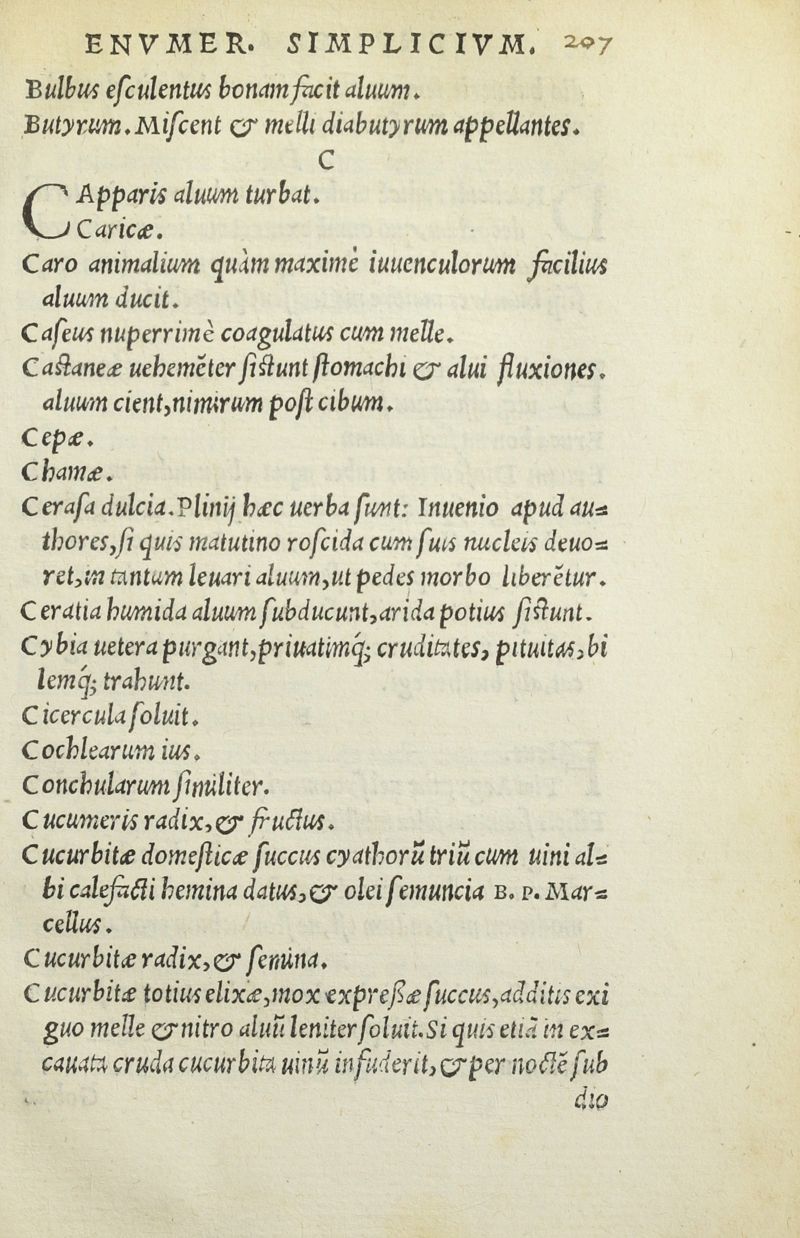 ENVMER. SIMPLICIVM. 207
Bulbus eſculentus bonam facit aluum.
Butyrum. Miſcent & melli diabutyrum appellantes.
C
CApparis aluum turbat.
Caricæ.
Caro animalium quàm maximè iuuenculorum facilius
aluum ducit.
Caſeus nuperrimè coagulatus cum melle.
Caſtaneæ uehemẽter ſiſtunt ſtomachi & alui fluxiones.
aluum cient, nimirum poſt cibum.
Cepæ.
Chamæ.
Ceraſa dulcia. Plinij hæc uerba ſunt: Inuenio apud au=
thores, ſi quis matutino roſcida cum ſuis nucleis deuo=
ret, in tantum leuari aluum, ut pedes morbo liberẽtur.
Ceratia humida aluum ſubducunt, arida potius ſiſtunt.
Cybia uetera purgant, priuatimq́; cruditates, pituitas, bi
lemq́; trahunt.
Cicercula ſoluit.
Cochlearum ius.
Conchularum ſimiliter.
Cucumeris radix, & fructus.
Cucurbitæ domeſticæ ſuccus cyathorũ triũ cum uini al=
bi calefacti hemina datus, & olei ſemuncia B. P. Mar=
cellus.
Cucurbitæ radix, & ſemina.
Cucurbitæ totius elixæ, mox expreſſæ ſuccus, additis exi
guo melle & nitro aluũ leniter ſoluit. Si quis etiã in ex=
cauata cruda cucurbita uinũ infuderit, & per noctẽ ſub
dio